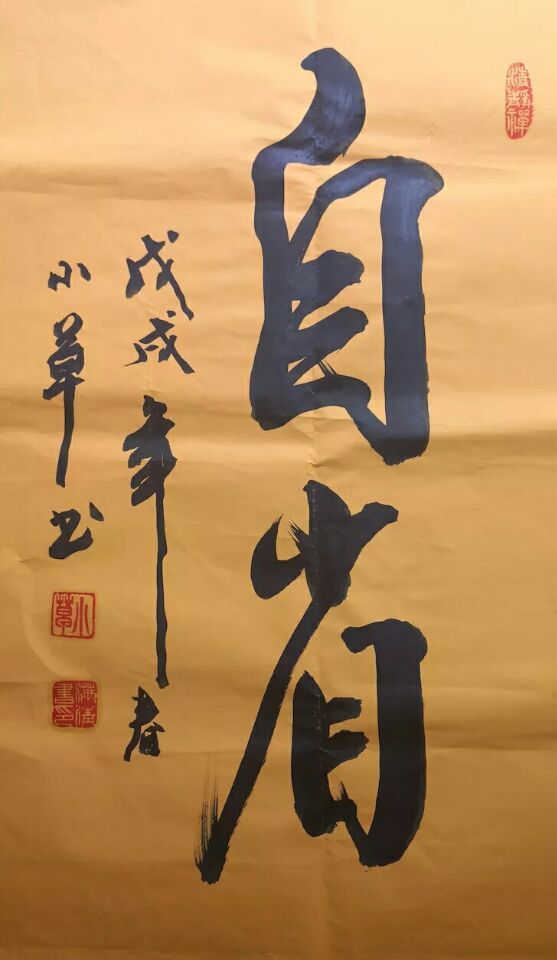 自省
戊戌年春
小草书
小草